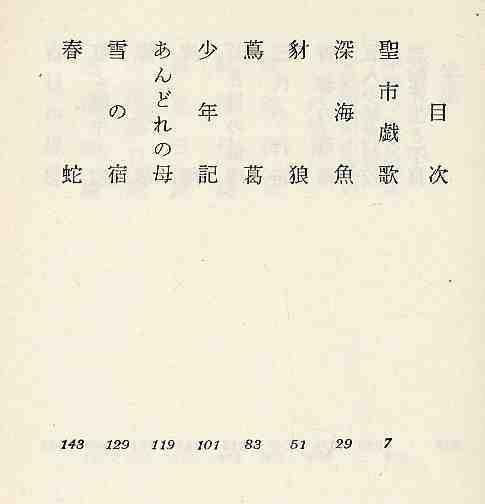 目次
聖市戯歌 7
深海魚 29
豺狼 51
蔦葛 83
少年記 101
あんどれの母 119
雪の宿 129
春蛇 143